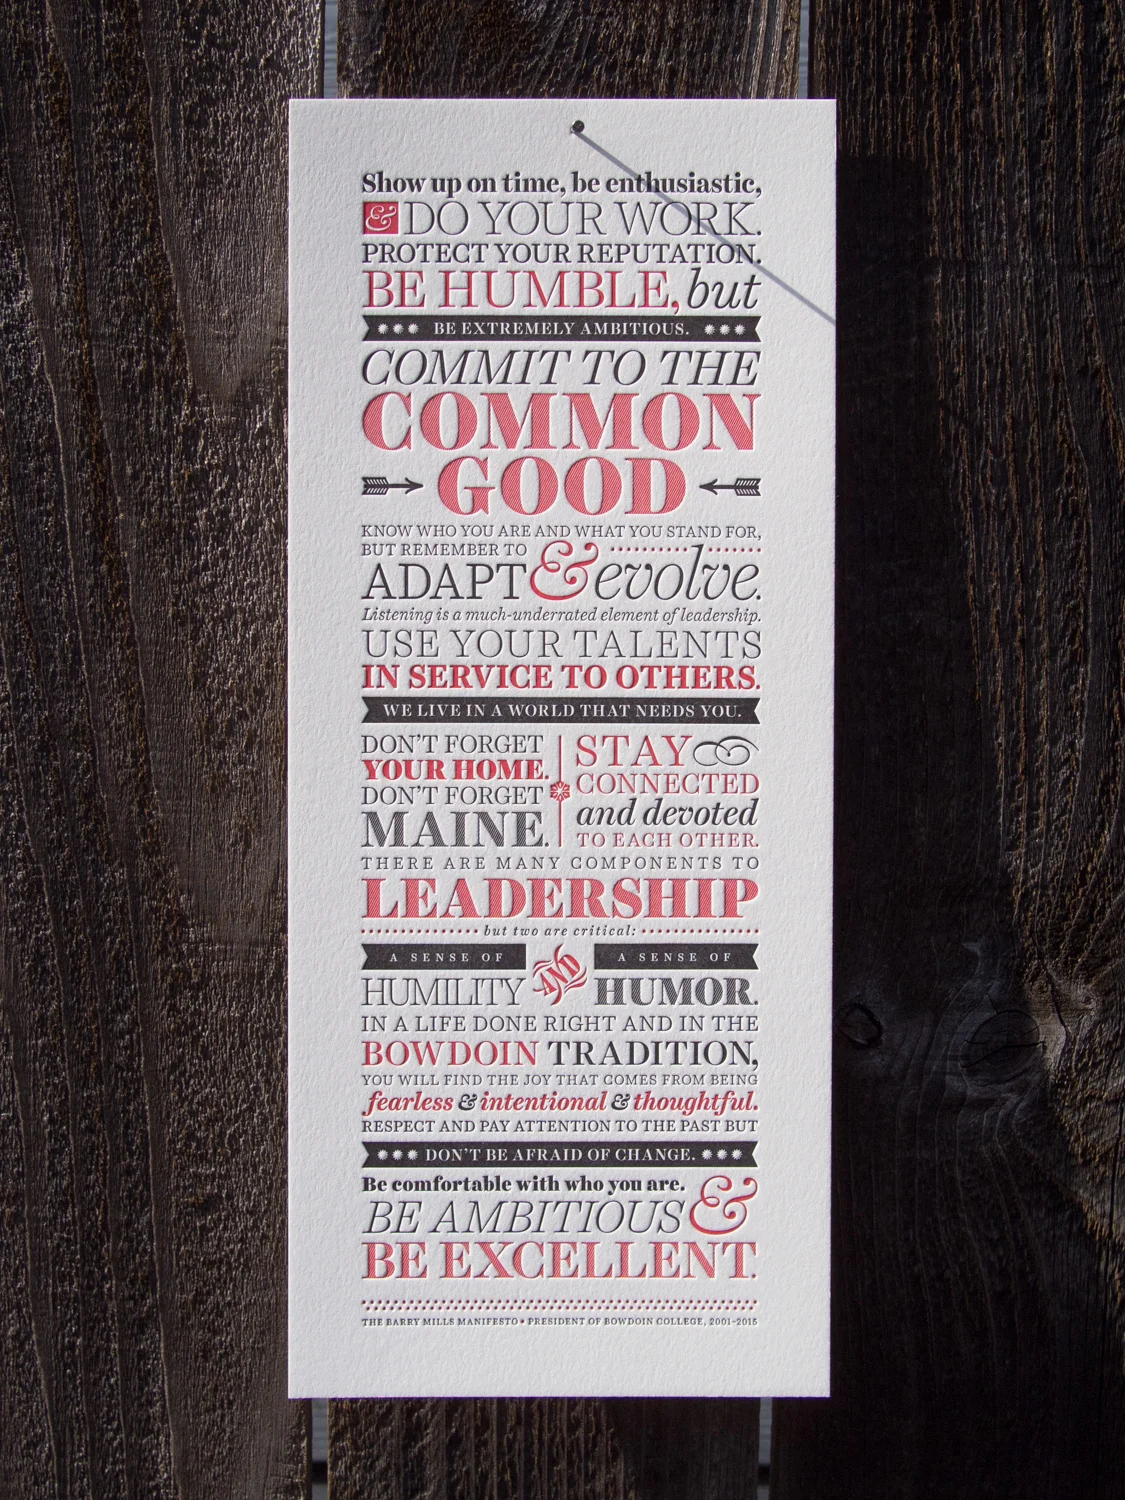 Show up on time, be enthusiastic,
& DO YOUR WORK.
PROTECT YOUR REPUTATION.
BE HUMBLE, but
BE EXTREMELY AMBITIOUS.
COMMIT TO THE
COMMON
GOOD
KNOW WHO YOU ARE AND WHAT YOU STAND FOR,
BUT REMEMBER TO
ADAPT & evolve.
Listening is a much-underrated element of leadership.
USE YOUR TALENTS
IN SERVICE TO OTHERS.
WE LIVE IN A WORLD THAT NEEDS YOU.
DON'T FORGET
YOUR HOME.
DON'T FORGET
MAINE.
STAY
CONNECTED
and devoted
TO EACH OTHER.
THERE ARE MANY COMPONENTS TO
LEADERSHIP
but two are critical:
A SENSE OF
HUMILITY
AND
A SENSE OF
HUMOR.
IN A LIFE DONE RIGHT AND IN THE
BOWDOIN TRADITION,
YOU WILL FIND THE JOY THAT COMES FROM BEING
fearless & intentional & thoughtful.
RESPECT AND PAY ATTENTION TO THE PAST BUT
DON'T BE AFRAID OF CHANGE.
Be comfortable with who you are.
BE AMBITIOUS &
BE EXCELLENT.
THE BARRY MILLS MANIFESTO • PRESIDENT OF BOWDOIN COLLEGE, 2001–2015